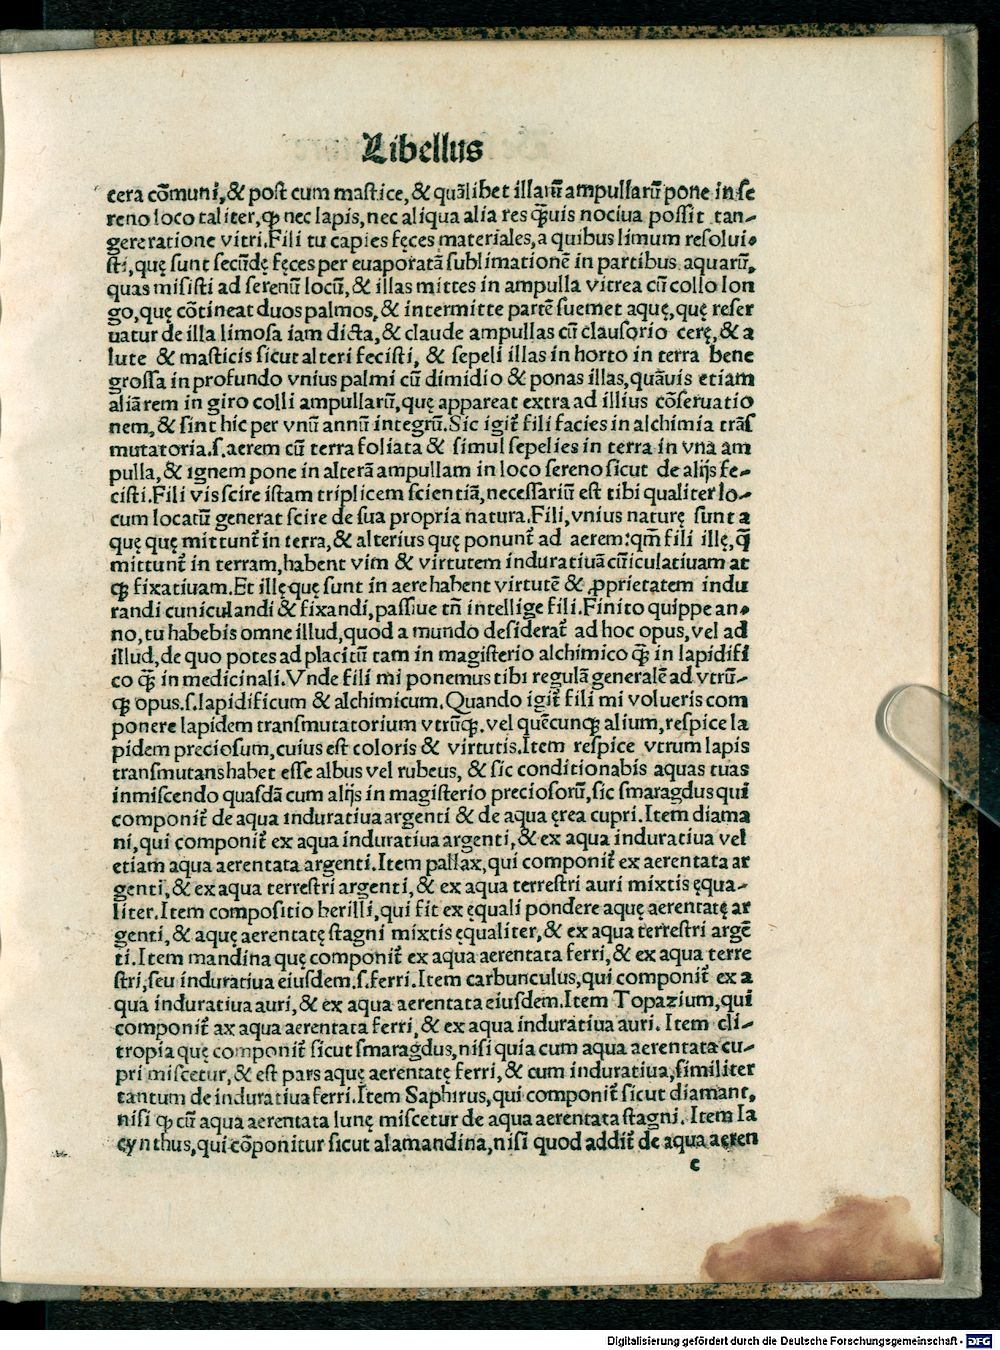 Libellus
cera cōmuni, & post cum mastice, & quālibet illarū ampullarū pone in se
reno loco taliter, ꝙ nec lapis, nec aliqua alia res q̄uis nociua possit tan-
gere ratione vitri. Fili tu capies fęces materiales, a quibus limum resolui-
sti, quę sunt secūdę fęces per euaporatā sublimationē in partibus aquarū,
quas misisti ad serenū locū, & illas mittes in ampulla vitrea cū collo lon
go, quę cōtineat duos palmos, & intermitte partē suemet aquę, quę reser
uatur de illa limosa iam dicta, & claude ampullas cū clausorio cerę, & a
lute & masticis sicut alteri fecisti, & sepeli illas in horto in terra bene
grossa in profundo vnius palmi cū dimidio & ponas illas, quāuis etiam
aliā rem in giro colli ampullarū, quę appareat extra ad illius cōseruatio
nem, & sint hic per vnū annū integrū. Sic igit̄ fili facies in alchimia trās
mutatoria .s. aerem cū terra foliata & simul sepelies in terra in vna am
pulla, & ignem pone in alterā ampullam in loco sereno sicut de alijs fe-
cisti. Fili vis scire istam triplicem scientiā, necessariū est tibi qualiter lo-
cum locatū generat scire de sua propria natura. Fili, vnius naturę sunt a
quę quę mittunt̄ in terra, & alterius quę ponunt̄ ad aerem: qm̄ fili illę, q̄
mittunt̄ in terram, habent vim & virtutem induratiuā cūiculatiuam at
qꝫ fixatiuam. Et illę quę sunt in aere habent virtutē & ꝓprietatem indu
randi cuniculandi & fixandi, passiue tn̄ intellige fili. Finito quippe an-
no, tu habebis omne illud, quod a mundo desiderat̄ ad hoc opus, vel ad
illud, de quo potes ad placitū tam in magisterio alchimico q̄ in lapidifi
co q̄ in medicinali. Vnde fili mi ponemus tibi regulā generalē ad vtrū-
qꝫ opus .s. lapidificum & alchimicum. Quando igit̄ fili mi volueris com
ponere lapidem transmutatorium vtrūqꝫ. vel quēcunqꝫ alium, respice la
pidem preciosum, cuius est coloris & virtutis. Item respice vtrum lapis
transmutans habet esse albus vel rubeus, & sic conditionabis aquas tuas
inmiscendo quasdā cum alijs in magisterio preciosorū, sic smaragdus qui
componit̄ de aqua induratiua argenti & de aqua ęrea cupri. Item diama
ni, qui componit̄ ex aqua induratiua argenti, & ex aqua induratiua vel
etiam aqua aerentata argenti. Item pallax, qui componit̄ ex aerentata ar
genti, & ex aqua terrestri argenti, & ex aqua terrestri auri mixtis ęqua-
liter. Item compositio berilli, qui fit ex ęquali pondere aquę aerentatę ar
genti, & aquę aerentatę stagni mixtis ęqualiter, & ex aqua terrestri argē
ti. Item mandina quę componit̄ ex aqua aerentata ferri, & ex aqua terre
stri, seu induratiua eiusdem .s. ferri. Item carbunculus, qui componit̄ ex a
qua induratiua auri, & ex aqua aerentata eiusdem. Item Topazium, qui
componit̄ ax aqua aerentata ferri, & ex aqua induratiua auri. Item eli-
tropia quę componit̄ sicut smaragdus, nisi quia cum aqua aerentata cu-
pri miscetur, & est pars aquę aerentatę ferri, & cum induratiua, similiter
tantum de induratiua ferri. Item Saphirus, qui componit̄ sicut diamant,
nisi ꝙ cū aqua aerentata lunę miscetur de aqua aerentata stagni. Item Ia
cynthus, qui cōponitur sicut alamandina, nisi quod addit̄ de aqua aeren
c
Digitalisierung gefördert durch die Deutsche Forschungsgemeinschaft - DFG